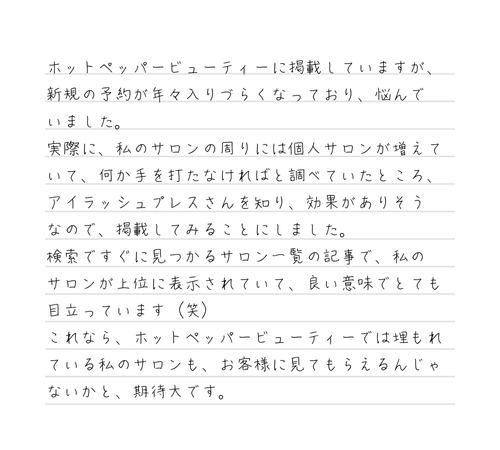 ホットペッパービューティーに掲載していますが、
新規の予約が年々入りづらくなっており、悩んで
いました。
実際に、私のサロンの周りには個人サロンが増えて
いて、何か手を打たなければと調べていたところ、
アイラッシュプレスさんを知り、効果がありそう
なので、掲載してみることにしました。
検索ですぐに見つかるサロン一覧の記事で、私の
サロンが上位に表示されていて、良い意味でとても
目立っています（笑）
これなら、ホットペッパービューティーでは埋もれ
ている私のサロンも、お客様に見てもらえるんじゃ
ないかと、期待大です。